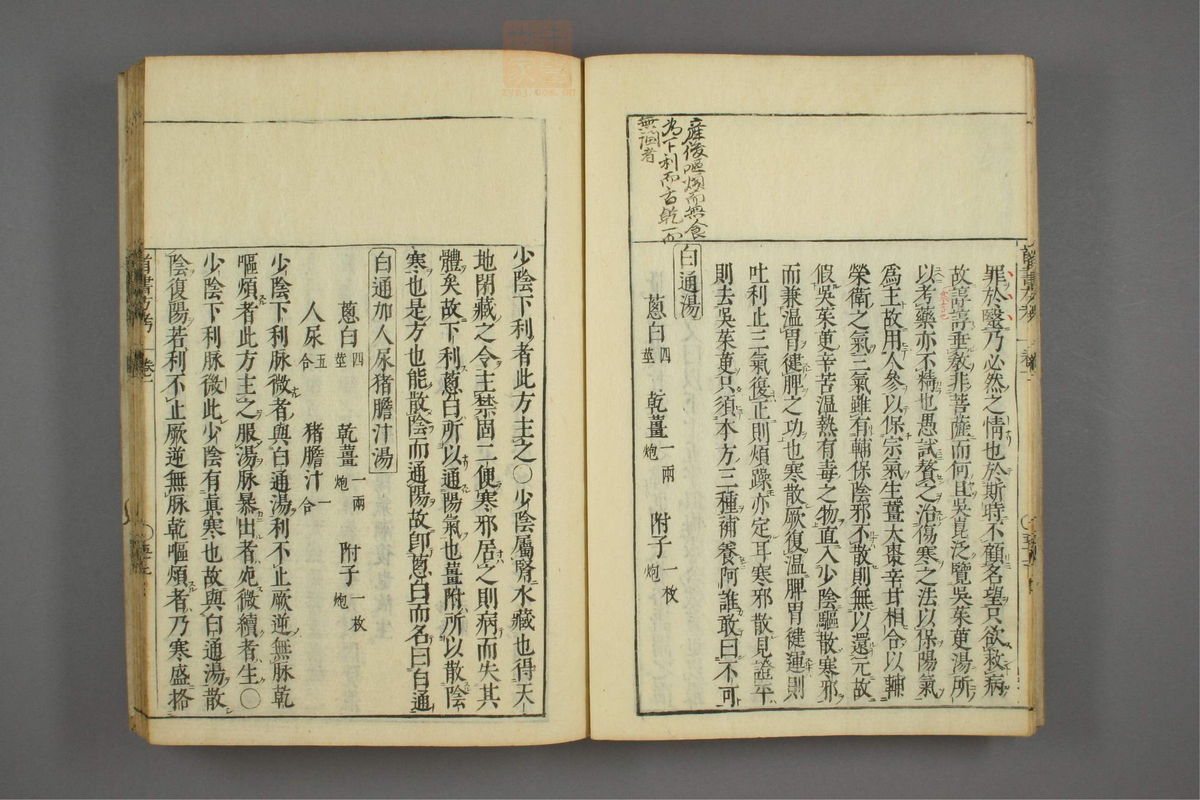 罪於醫乃必然之情也於斯時不顧名望只欲救病
故諄諄垂教非菩薩而何且吳崑泛覽吳茱萸湯所
以考藥亦不精也愚試贅之治傷寒之法以保陽氣
爲主故用人參以保宗氣生薑大棗辛甘相合以輔
榮衛之氣三氣雖有輔保陰邪不散則無以還元故
假吳茱萸辛苦温熱有毒之物直入少陰驅散寒邪
而兼温胃健脾之功也寒散厥復温脾胃健運則
吐利止三氣復正則煩躁亦定耳寒邪散見證平
則去吳茱萸只須本方三種補養阿誰敢曰不可
白通湯
葱白四莖 乾薑一兩炮 附子一枚炮
產後嘔煩而無食
為下利而舌乾一而
無涸者
少陰下利者此方主之〇少陰屬腎水藏也得天
地閉藏之令主禁固二便寒邪居之則病而失其
體矣故下利葱白所以通陽氣也薑附所以散陰
寒也是方也能散陰而通陽故即葱白而名曰白通
白通加人尿猪膽汁湯
葱白四莖 乾薑一兩炮 附子一枚炮
人尿五合 猪膽汁一合
少陰下利脉微者與白通湯利不止厥逆無脉乾
嘔煩者此方主之服湯脉暴出者死微續者生〇
少陰下利脉微此少陰有真寒也故與白通湯散
陰復陽若利不止厥逆無脉乾嘔煩者乃寒盛挌
醫書方考 卷一